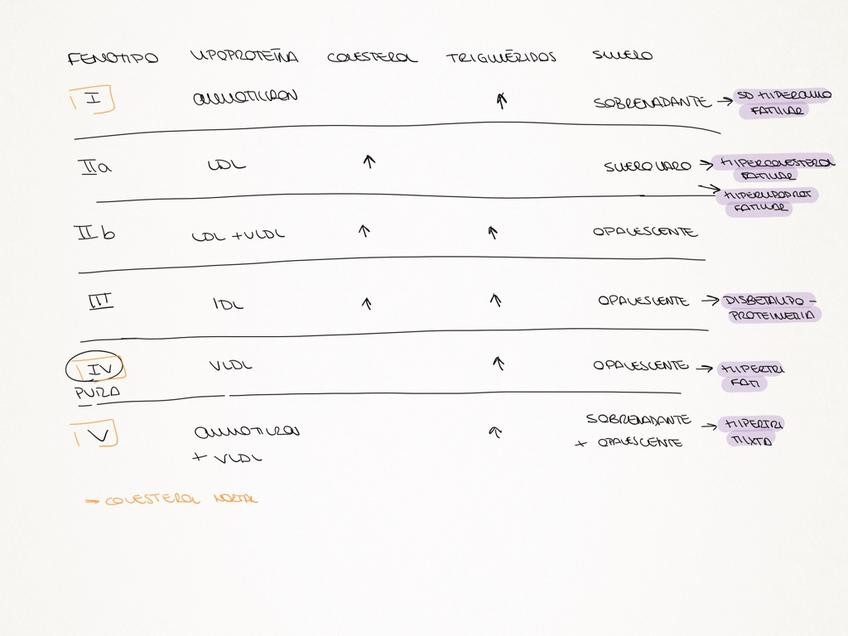 FENOTIPO LIPOPROTEÍNA COLESTEROL TRIGLICÉRIDOS SUERO
I QUILOMICRON ↑ SOBRENADANTE → SD HIPERQUILO
FAMILIAR
IIa LDL ↑ SUERO CLARO → HIPERCOLESTEROL
FAMILIAR
→ HIPERLIPOPROT
FAMILIAR
IIb LDL + VLDL ↑ ↑ OPALESCENTE
III IDL ↑ ↑ OPALESCENTE → DISBETALIPO-
PROTEINEMIA
IV VLDL ↑ OPALESCENTE → HIPERTRI
FAM
PURA
V QUILOMICRON ↑ SOBRENADANTE → HIPERTRI
+ VLDL + OPALESCENTE MIXTA
→ COLESTEROL NORMAL